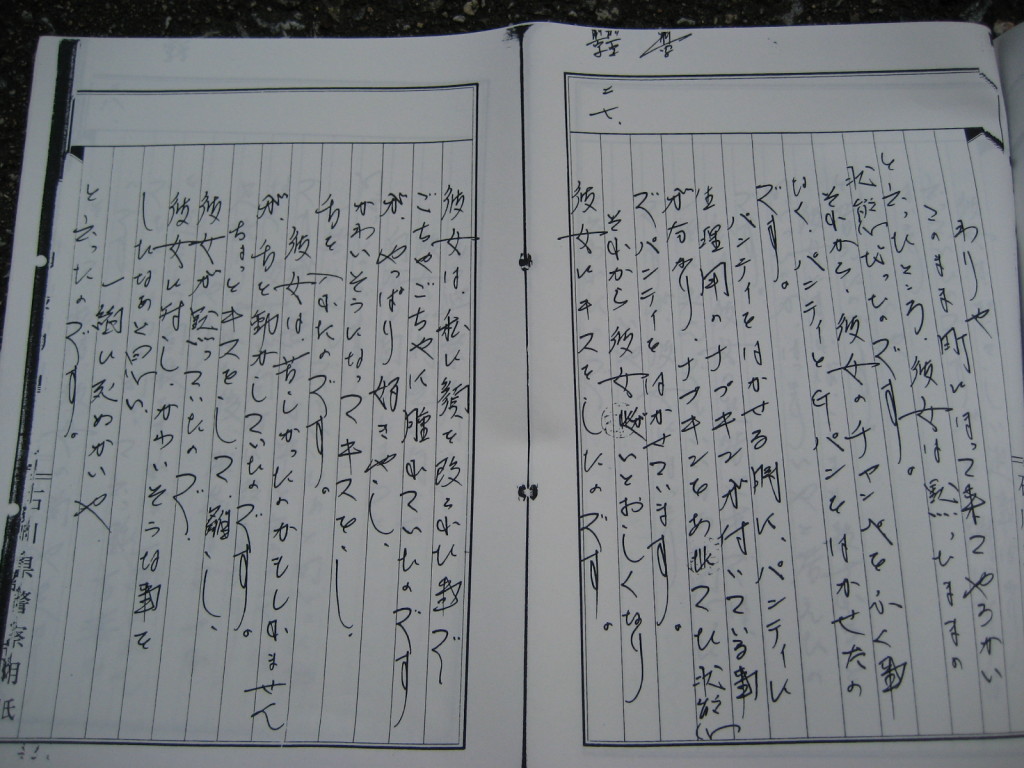 わりゃ
このまま町にほって来てやろかい
と言ったところ、彼女は黙ったままの
状態だったのです。
それから、彼女のチャンペをふく事
なく、パンティとGパンをはかせたの
です。
パンティをはかせる際に、パンティに
生理用のナプキンが付いている事
が分り、ナプキンをあてた状態
でパンティをはかせています。
それから彼女がいとおしくなり
彼女にキスをしたのです。
彼女は、私に顔を殴られた事で
ごちゃごちゃに腫れていたのです
が、やっぱり好きやし、
かわいそうになってキスをし、
舌を入れたのです。
彼女は、苦しかったのかもしれません
が、舌を動かしていたのです。
ちょっとキスをして、離し、
彼女が黙っていたので、
彼女に対し、かわいそうな事を
したなあと思い
一緒に死ぬかいや
と言ったのです。
石川県警察